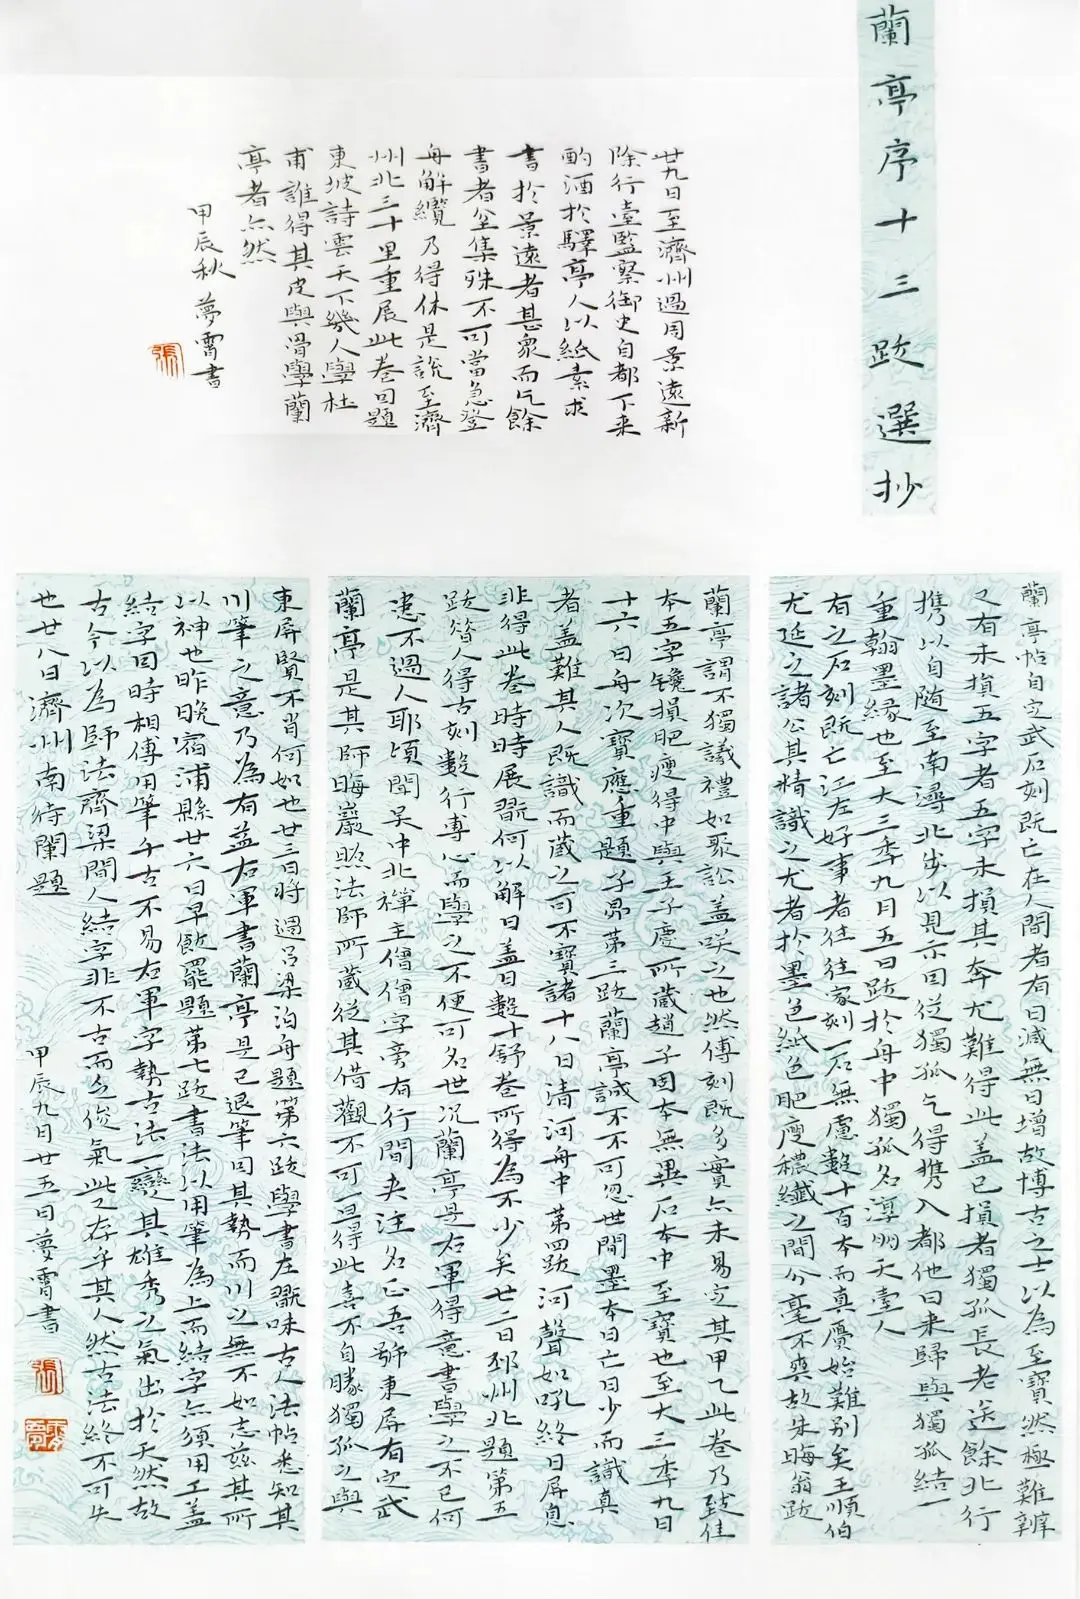 蘭亭序十三跋選抄
蘭亭帖自定武石刻既亡在人間者有日減無日增故博古之士以為至寶然極難辨
又有未損五字者五字未損其本尤難得此蓋已損者獨孤長老送餘北行
携以自随至南潯北出以見示因從獨孤乞得携入都他日来歸與獨孤結一
重翰墨緣也至大三年九月五日跋於舟中獨孤名淳朋天臺人
有之石刻既亡江左好事者往往家刻一石無慮數十百本而真贋始難別矣王順伯
尤延之諸公其精識之尤者於墨色紙色肥瘦穠纖之間分毫不爽故朱晦翁跋
蘭亭謂不獨議禮如聚訟蓋咲之也然傳刻既多實亦未易定其甲乙此卷乃致佳
本五字鑱損肥瘦得中與王子慶所藏趙子固本無異石本中至寶也至大三年九月
十六日舟次寶應重題子昂第三跋蘭亭誠不可忽世間墨本日亡日少而識真
者盖難其人既識而藏之可不寶諸十八日清河舟中第四跋河聲如吼終日屏息
非得此卷時時展翫何以解日蓋日數十舒卷所得為不少矣廿二日邳州北題第五
跋昔人得古刻數行專心而學之不便可名世况蘭亭是右軍得意書學之不已何
患不過人耶頃聞吴中北禪主僧僧字旁有行間夹注名正吾號東屏有定武
蘭亭是其師晦巖照法師所藏從其借觀不可一旦得此喜不自勝獨孤之與
東屏賢不肖何如也廿三日將過吕梁泊舟題第六跋學書在翫味古人法帖悉知其
用筆之意乃為有益右軍書蘭亭是已退筆因其勢而用之無不如志兹其所
以神也昨晚宿浦縣廿六日早飯罷題第七跋書法以用筆為上而結字亦須用工蓋
結字因時相傳用筆千古不易右軍字勢古法一變其雄秀之氣出於天然故
古今以為師法齊梁間人結字非不古而乏俊氣此又存乎其人然古法終不可失
也廿八日濟州南待闡題
甲辰九月廿五日夢霄書
張
廿九日至濟州遇周景遠新
除行臺監察御史自都下来
酌酒於驛亭人以紙素求
書於景遠者甚衆而乞餘
書者坌集殊不可當急登
舟解纜乃得休是說至濟
州北三十里重展此卷因題
東坡詩雲天下幾人學杜
甫誰得其皮與骨學蘭
亭者亦然
甲辰秋夢霄書
張